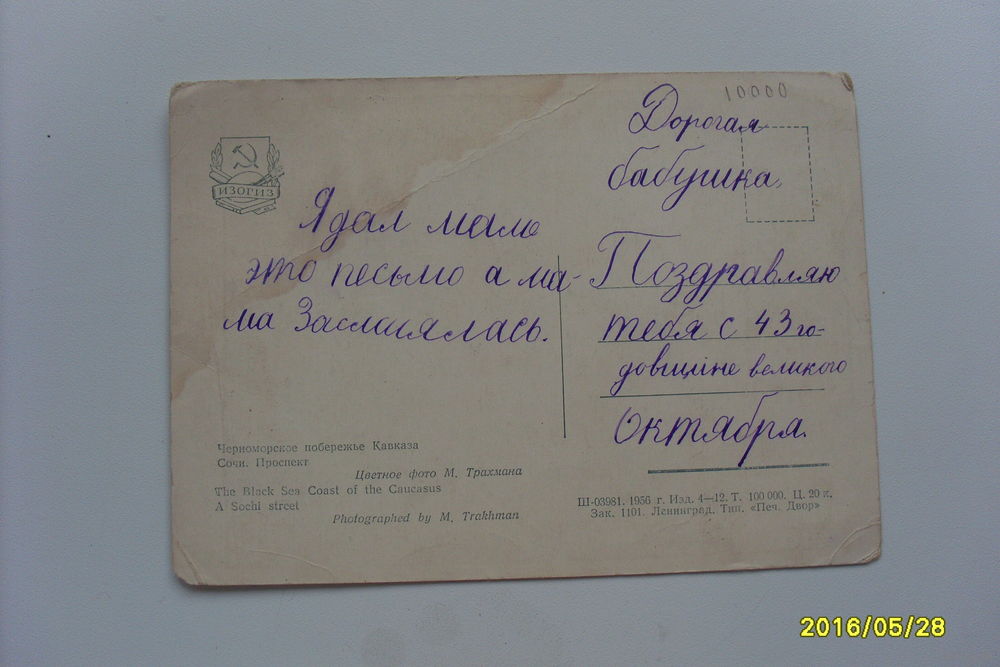 10000
ИЗОГИЗ
Дорогая
бабушка.
Поздравляю
тебя с 43 го-
довщине великого
октября.
Я дал маме
это песьмо а ма-
ма Заслиялась.
Черноморское побережье Кавказа
Сочи. Проспект
Цветное фото М. Трахмана
The Black Sea Coast of the Caucasus
A Sochi street
Photographed by M. Trakhman
Ш-03981. 1956 г. Изд. 4—12. Т. 100 000. Ц. 20 к.
Зак. 1101. Ленинград. Тип. «Печ. Двор»
2016/05/28